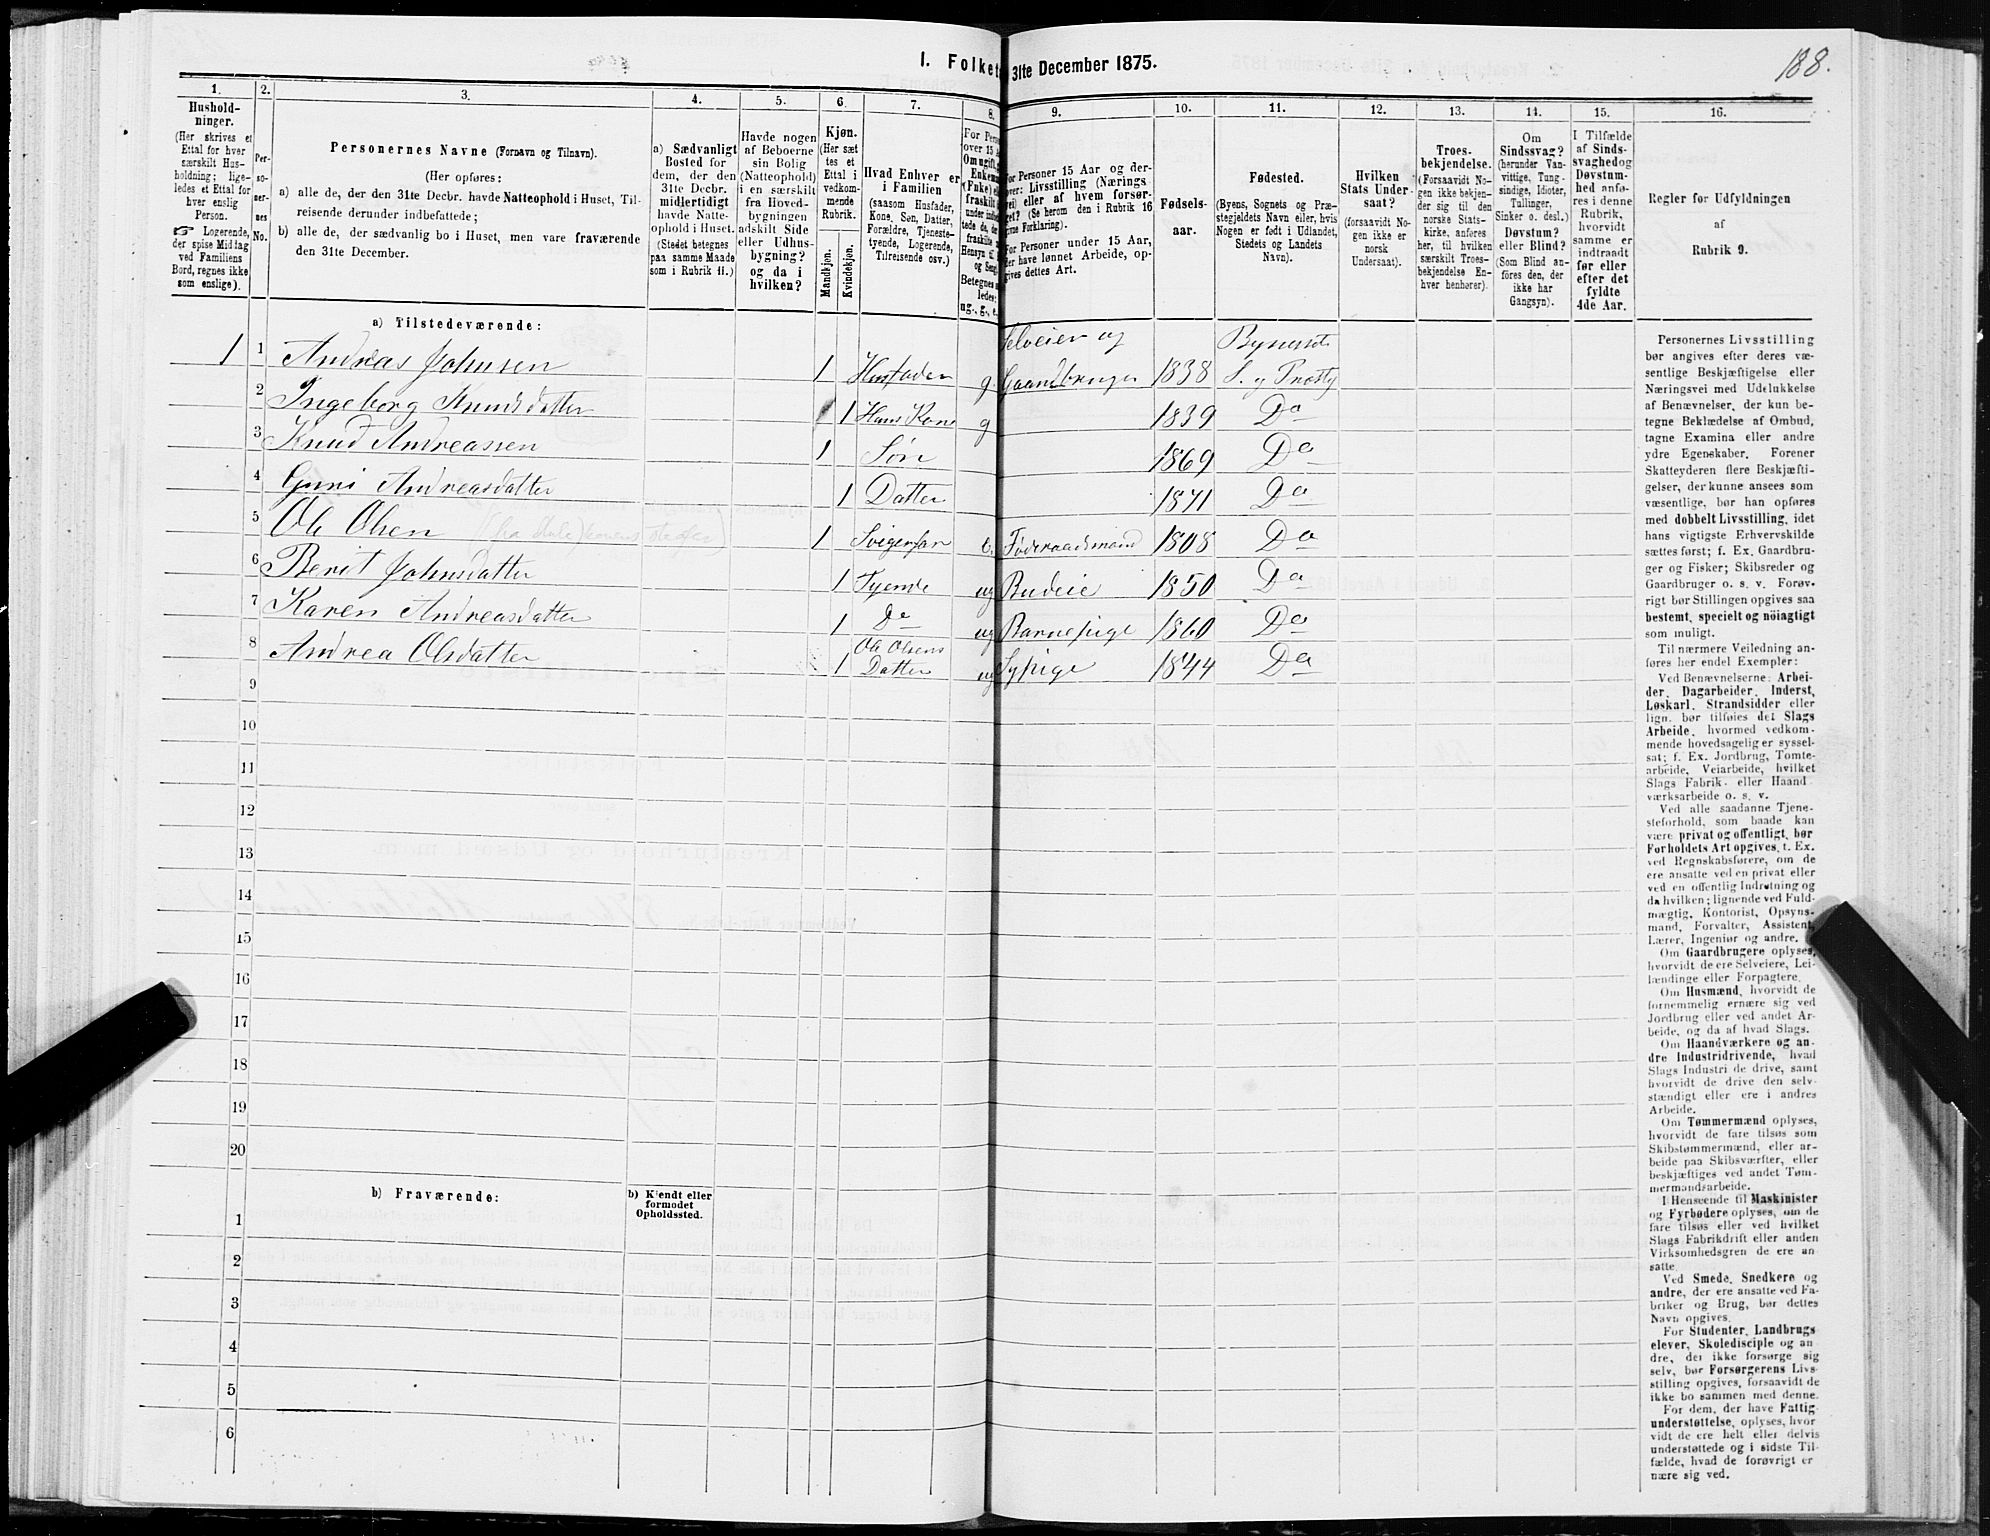 188.
I. Folket
31te December 1875.
1.
2.
3.
4.
5.
6.
7.
8.
9.
10.
11.
12.
13.
14.
15.
16.
Hushold-
ninger.
(Her skrives et
Ettal for hver
særskilt Hus-
holdning; lige-
ledes et Ettal for
hver enslig
Person.
Logerende,
der spise Middag
ved Familiens
Bord, regnes ikke
som enslige).
Per-
so-
ner-
nes
No.
Personernes Navne (Fornavn og Tilnavn).
(Her opføres:
a) alle de, der den 31te Decbr. havde Natteophold i Huset, Til-
reisende derunder indbefattede;
b) alle de, der sædvanlig bo i Huset, men vare fraværende
den 31te December.
a) Sædvanligt
Bosted for
dem, der den
31te Decbr.
midlertidigt
havde Natte-
ophold i Huset.
(Stedet betegnes
paa samme Maade
som i Rubrik 11.)
Havde nogen
af Beboerne
sin Bolig
(Natteophold)
i en særskilt
fra Hoved-
bygningen
adskilt Side
eller Udhus-
bygning?
og da i
hvilken?
Kjøn.
(Her sæt
tes et
Ettal i
vedkom-
mende
Rubrik.
Mandkjøn.
Kvindekjøn.
Hvad Enhver er
i Familien
(saasom Husfader,
Kone, Søn, Datter,
Forældre, Tjeneste-
tyende, Logerende,
Tilreisende osv.)
For Pers
over 15 A
Om ugift, g
Enkem
(Enke) e
fraskilt
Betegnes
ledes:
ug., g., e.
For Personer 15 Aar og der-
over: Livsstilling (Nærings
vei) eller af hvem forsør-
get? (Se herom den i Rubrik 16
givne Forklaring).
For Personer under 15 Aar,
der have lønnet Arbeide, op-
gives dettes Art.
Fødsels-
aar.
Fødested.
(Byens, Sognets og Præ-
stegjeldets Navn eller, hvis
Nogen er født i Udlandet,
Stedets og Landets
Navn).
Hvilken
Stats Under-
saat?
(forsaavidt No-
gen ikke er
norsk
Undersaat).
Troes-
bekjendelse.
(Forsaavidt No-
gen ikke bekjen-
der sig til den
norske Stats-
kirke, anføres
her, til hvilken
særskilt Troes-
bekjendelse En-
hver henhører).
Om
Sindssvag?
(herunder Van-
vittige, Tung-
sindige, Idioter,
Tullinger,
Sinker o. desl.)
Døvstum?
eller Blind?
(Som Blind an-
føres den, der
ikke har
Gangsyn).
I Tilfælde
af Sinds-
svaghedog
Døvstum-
hed anfø-
res i denne
Rubrik,
hvorvidt
samme er
indtraadt
før eller
efter det
fyldte
4de Aar.
Regler for Udfyldningen
af
Rubrik 9.
a) Tilstedeværende:
1 1 Andreas Johnsen 1 Husfader g Selveier og Gaardbruger 1838 Bynesets S. og Præstg
2 Ingeborg Knudsdatter 1 Hans Kone g 1839 Do
3 Knud Andreassen 1 Søn 1869 Do
4 Guri Andreasdatter 1 Datter 1871 Do
5 Ole Olsen 1 Svigerfar e. Føderaadsmand 1808 Do
6 Berit Johnsdatter 1 Tyende ug Budeie 1850 Do
7 Karen Andreasdatter 1 Do ug Barnepige 1860 Do
8 Andrea Olsdatter 1 Ole Olsens Datter ug Sypige 1844 Do
9
10
11
12
13
14
15
16
17
18
19
20
b) Fraværende:
b) Kjendt eller
formodet
Opholdssted.
1
2
3
4
5
6
Personernes Livsstilling
bør angives efter deres væ-
sentlige Beskjæftigelse eller
Næringsvei med Udelukkelse
af Benævnelser, der kun be-
tegne Beklædelse af Ombud,
tagne Examina eller andre
ydre Egenskaber. Forener
Skatteyderen flere Beskjæfti-
gelser, der kunne ansees som
væsentlige, bør han opføres
med dobbelt Livsstilling, idet
hans vigtigste Erhvervskilde
sættes først; f. Ex. Gaardbru-
ger og Fisker; Skibsreder og
Gaardbruger o. s. v. Forøv-
rigt bør Stillingen opgives saa
bestemt, specielt og nöiagtigt
som muligt.
Til nærmere Veiledning an-
føres her endel Exempler:
Ved Benævnelserne: Arbei-
der, Dagarbeider, Inderst,
Løskarl, Strandsidder eller
lign. bør tilføies det Slags
Arbeide, hvormed vedkom-
mende hovedsagelig er syssel-
sat; f. Ex. Jordbrug, Tomte-
arbeide, Veiarbeide, hvilket
Slags Fabrik- eller Haand
værksarbeide o. s. v.
Ved alle saadanne Tjene-
steforhold, som baade kan
være privat og offentligt, bør
Forholdets Art opgives, t. Ex.
ved Regnskabsførere, om de
ere ansatte ved en privat eller
ved en offentlig Indretning og
da hvilken; lignende ved Fuld-
mægtig, Kontorist, Opsyns-
mand, Forvalter, Assistent,
Lærer, Ingeniør og andre.
Om Gaardbrugere oplyses,
hvorvidt de ere Selveiere, Lei-
lændinge eller Forpagtere.
Om Husmænd, hvorvidt de
fornemmelig ernære sig ved
Jordbrug eller ved andet Ar-
beide, og da af hvad Slags.
Om Haandværkere og an-
dre Industridrivende, hvad
Slags Industri de drive, samt
hvorvidt de drive den selv-
stændigt eller ere i andres
Arbeide.
Om Tømmermænd oplyses,
hvorvidt de fare tilsøs som
Skibstømmermænd, eller ar-
beide paa Skibsværfter, eller
beskjæftiges ved andet Tøm-
mermandsarbeide.
I Henseende til Maskinister
og Fyrbødere oplyses, om de
fare tilsøs eller ved hvilket
Slags Fabrikdrift eller anden
Virksomhedsgren de ere an-
satte.
Ved Smede, Snedkere og
andre, der ere ansatte ved Fa-
briker og Brug, bør dettes
Navn opgives.
For Studenter, Landbrugs
elever, Skoledisciple og an
dre, der ikke forsørge sig
selv, bør Forsørgerens Livs-
stilling opgives, forsaavidt de
ikke bo sammen med denne.
For dem, der have Fattig
understøttelse, oplyses, hvor
vidt de ere helt eller delvis
understøttede og i sidste Til-
fælde, hvad de forøvrigt er
nære sig ved.